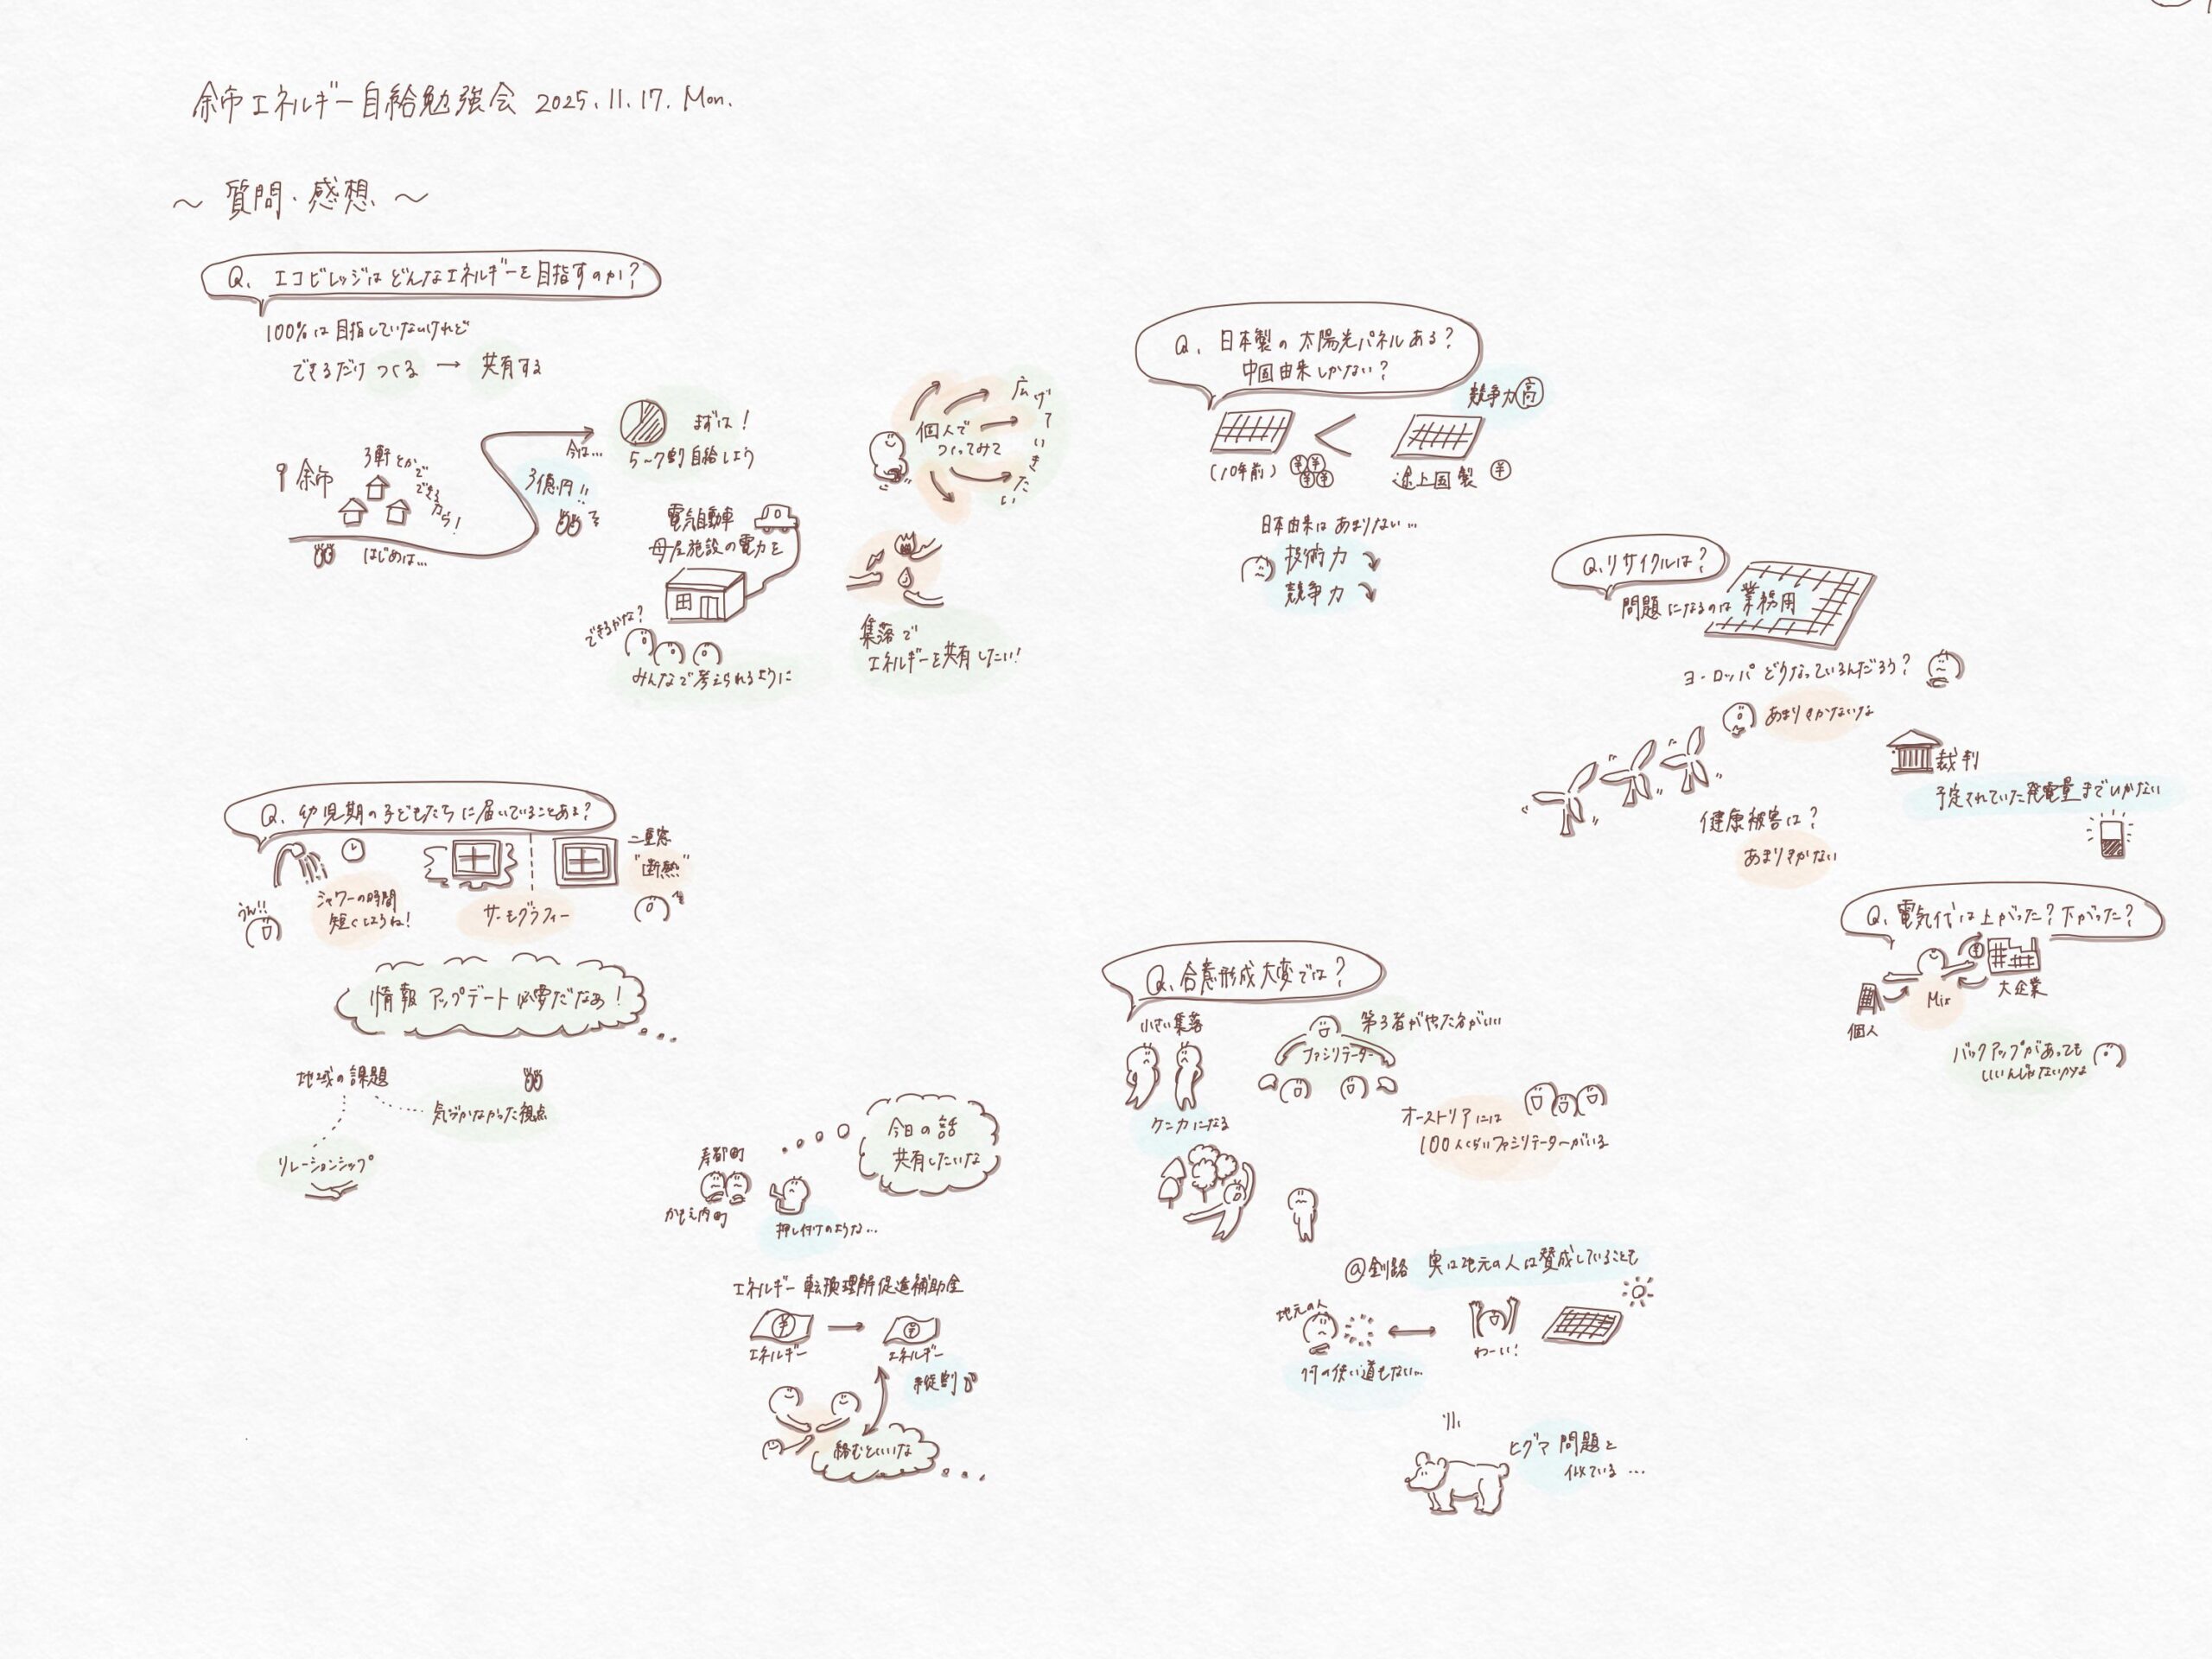 余市エネルギー自給勉強会 2025.11.17. Mon.
〜 質問・感想 〜
Q. エコビレッジはどんなエネルギーを目指すのか?
100%は目指していないけれど
できるだけ つくる → 共有する
余市
3軒とかで
できるから!
はじめは…
3億円!!
今は…
まずは!
5〜7割自給しよう
電気自動車
母屋施設の電力を
できるかな?
みんなで考えられるように
個人で
つくってみて
広げていきたい
集落で
エネルギーを共有したい!
Q. 幼児期の子どもたちに届いていることある?
うん!!
シャワーの時間
短くしようね!
サーモグラフィー
二重窓
"断熱"
情報アップデート必要だなぁ!
地域の課題
気づかなかった視点
リレーションシップ
寿都町
かもえ内町
押し付けのような…
今日の話
共有したいな
エネルギー転換理解促進補助金
¥
¥
エネルギー
エネルギー
縦割り
絡むといいな
Q. 日本製の太陽光パネルある?
中国由来しかない?
競争力高
(10年前)
¥¥
¥¥
<
途上国製
¥
日本由来はあまりない…
技術力
競争力
Q. リサイクルは?
問題になるのは 業務用
ヨーロッパどうなっているんだろう?
あまりきかないな
裁判
予定されていた発電量までいかない
健康被害は?
あまりきかない
Q. 電気代は上がった?下がった?
¥
Mix
個人
大企業
バックアップがあっても
いいんじゃないかな
Q. 合意形成大変では?
小さい集落
ケンカになる
第3者がやった方がいい
ファシリテーター
オーストリアには
100人くらいファシリテーターがいる
@釧路 実は地元の人は賛成していることも
地元の人
何の使い道もない…
わーい!
ヒグマ問題と
似ている…